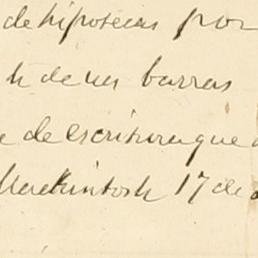 de hipotecas por
h de us barras
e de escritura que
Mackintosh 17 de